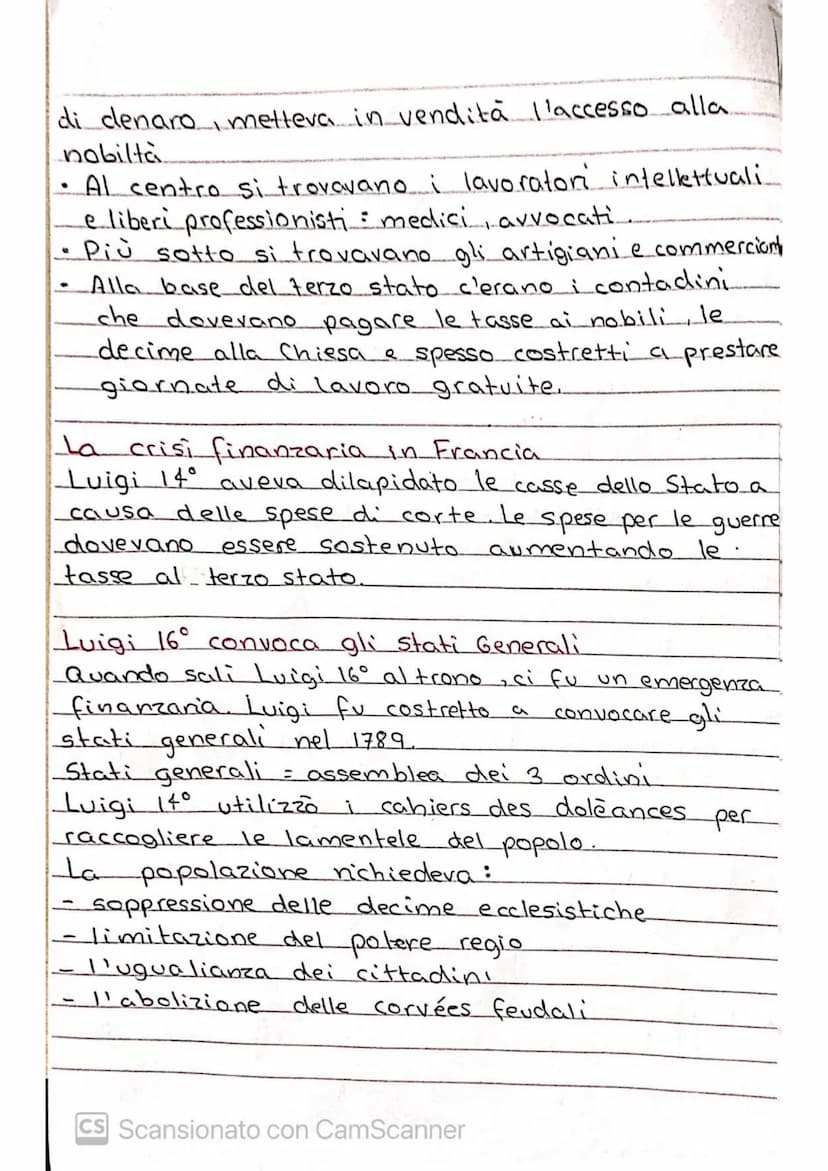 di denaro, metteva in vendità l'accesso alla
nobiltà
• Al centro si trovavano i lavoratori intellettuali
e liberi professionisti : medici, avvocati.
• Più sotto si trovavano gli artigiani e commercianti
• Alla base del terzo stato c'erano i contadini
che dovevano pagare le tasse ai nobili, le
decime alla Chiesa e spesso costretti a prestare
giornate di lavoro gratuite.
La crisi finanzaria in Francia
Luigi 14° aveva dilapidato le casse dello Stato a
causa delle spese di corte. Le spese per le guerre
dovevano essere sostenuto aumentando le
tasse al terzo stato.
Luigi 16° convoca gli Stati Generali
Quando salì Luigi 16° al trono, ci fu un emergenza
finanzaria. Luigi fu costretto a convocare gli
stati generali nel 1789.
Stati generali = assemblea dei 3 ordini
Luigi 14° utilizzò i cahiers des dolèances per
raccogliere le lamentele del popolo.
La popolazione richiedeva :
- soppressione delle decime ecclesistiche
- limitazione del potere regio
- l'ugualianza dei cittadini
- l'abolizione delle corvées feudali
CS Scansionato con CamScanner